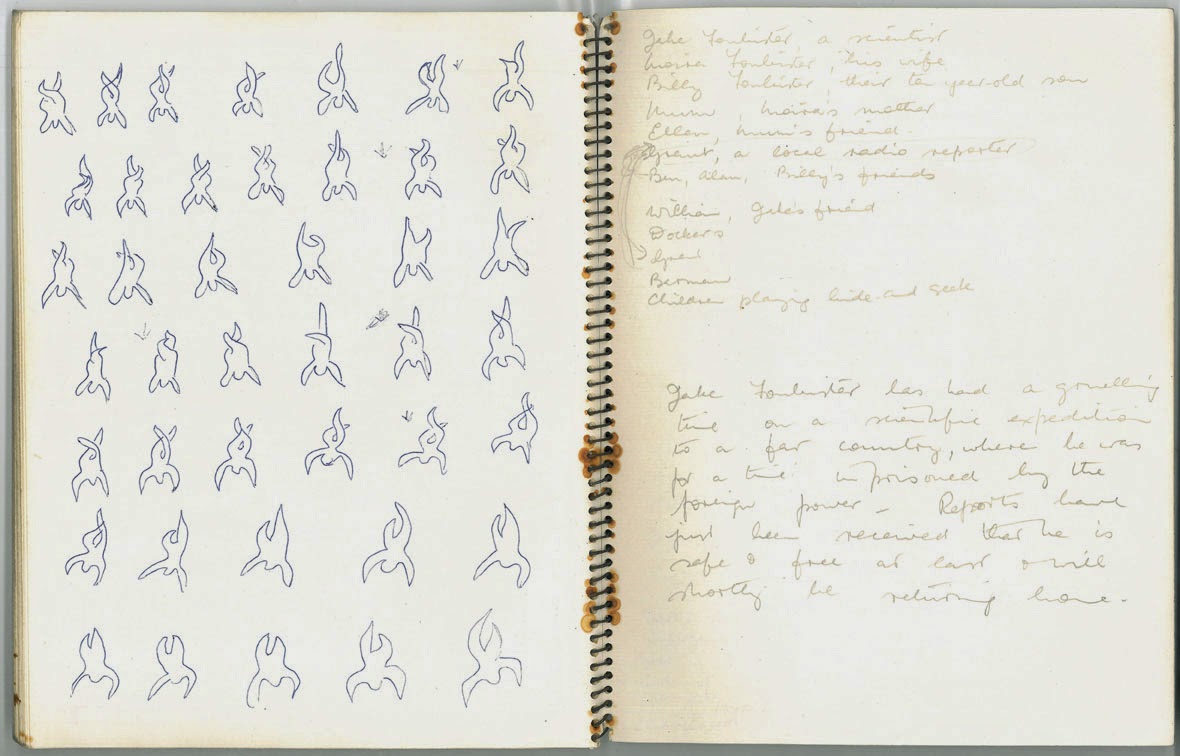 Gabe Fonluister, a scientist
Moira Fonluister, his wife
Billy Fonluister, their ten year-old son
Mum, Moira's mother
Ellen, Mum's friend.
Grant, a local radio reporter
Ben, Alan, Billy's friends
William, Gabe's friend
Dockers
Barman
Children playing hide-and seek
Gabe Fonluister has had a gruelling
time on a scientific expedition
to a far country, where he was
for a time imprisoned by the
foreign power – Reports have
just been received that he is
safe & free at last & will
shortly be returning home.